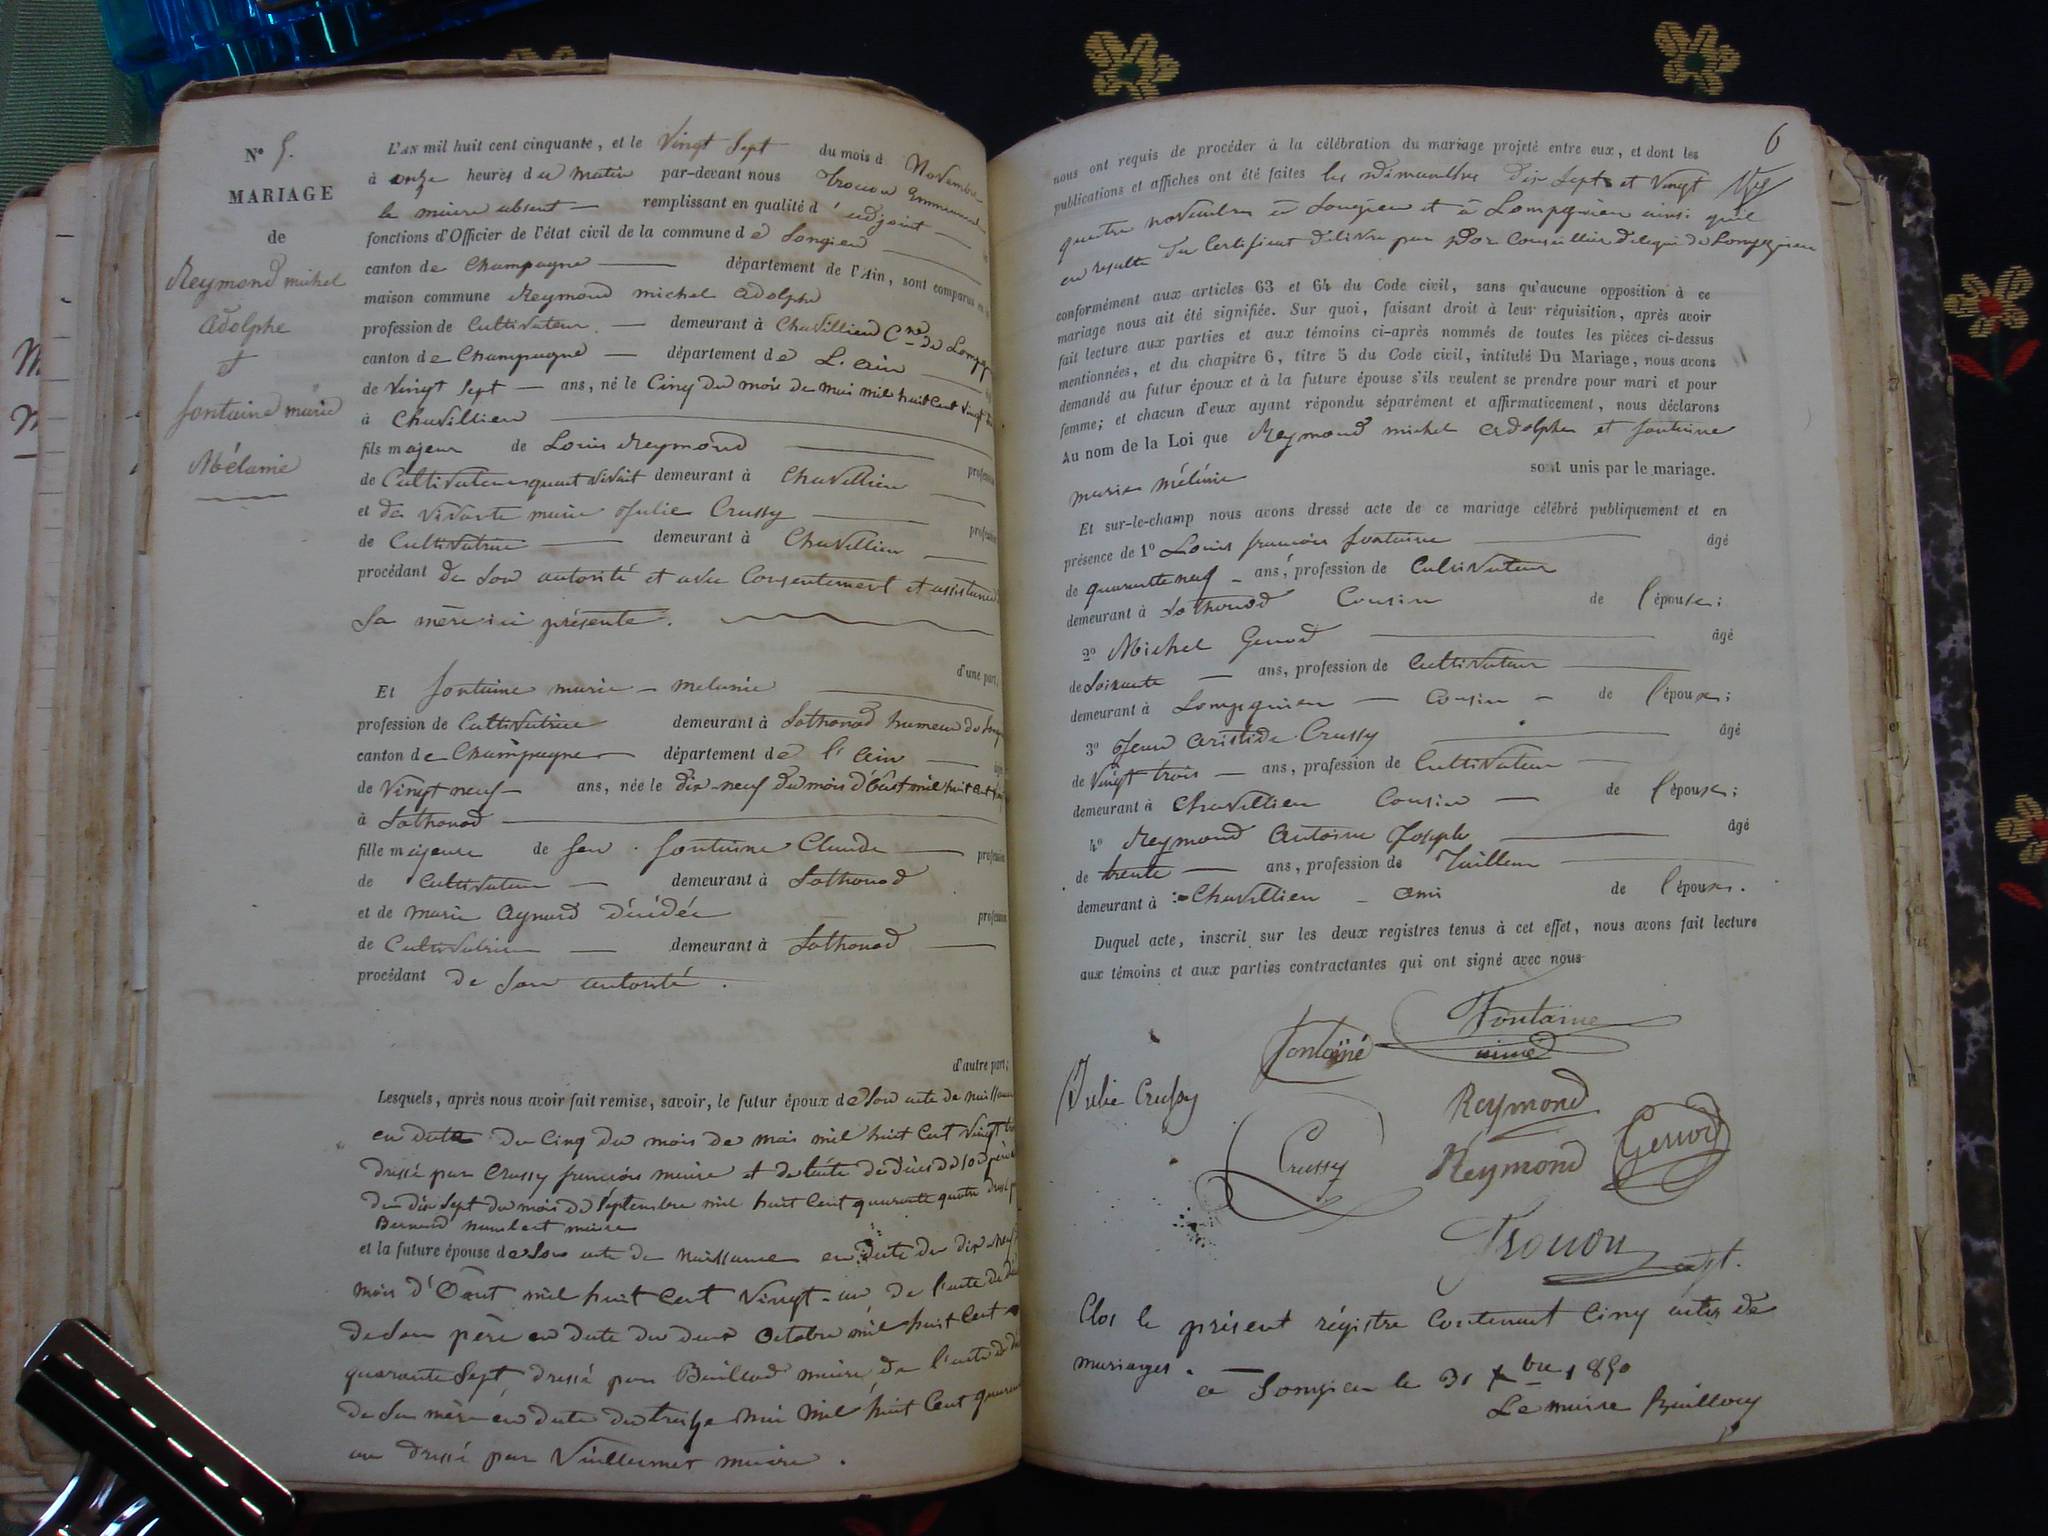 N° 5.
MARIAGE
de
Reymond michel
adolphe
et
fontaine marie
Mélanie
L'AN mil huit cent cinquante, et le Vingt Sept du mois d Novembre
à onze heures du matin par-devant nous Trouou Emmanuel
le maire absent remplissant en qualité d'adjoint
fonctions d'Officier de l'état civil de la commune de Songieu
canton de Champagne département de l'Ain, sont comparus en
maison commune Reymond michel adolphe
profession de Cultivateur demeurant à Chavillieu Cne de Lomp
canton de Champagne département de L'ain
de Vingt Sept ans, né le Cinq du mois de mai mil huit Cent Vingt
à Chavillieu
fils majeur de Louis Reymond profession
de Cultivateur quant vivait demeurant à Chavillieu
et de vivante marie Julie Crussy profession
de Cultivatrice demeurant à Chavillieu
procédant de Son autorité et avec Consentement et assistance
Sa mère ici présente.
d'une part,
Et fontaine marie melanie
profession de Cultivatrice demeurant à Sothonod hameau de Song
canton de Champagne département de l'ain
de Vingt neuf ans, née le dix-neuf du mois d'Oâut mil huit Cent
à Sothonod
fille majeure de feu fontaine Claude profession
de Cultivateur demeurant à Sothonod
et de marie Aynard décédée profession
de Cultivatrice demeurant à Sothonod
procédant de Son autorité.
d'autre part;
Lesquels, après nous avoir fait remise, savoir, le futur époux de Son acte de naissance
en date du Cinq du mois de mai mil huit Cent Vingt
dressé par Crussy françois maire et de l'acte de décès de son père
du dix Sept du mois de Septembre mil huit Cent quarante quatre dressé
Bernard humbert maire
et la future épouse de Son acte de Naissance en date du dix neuf
mois d'Oâut mil huit Cent Vingt-un, de l'acte de
de Son père en date du deux Octobre mil huit Cent
quarante Sept, dressé par Buillod maire, de l'acte de
de Sa mère en date du treize mai mil huit Cent
un dressé par Vuillermet maire.
6
nous ont requis de procéder à la célébration du mariage projeté entre eux, et dont les
publications et affiches ont été faites les Dimanches dix Sept et Vingt
quatre novembre à Songieu et à Lompnieu ainsi qu'il
en resulte du Certificat délivré par Dor Conseiller délégué de Lompnieu
conformément aux articles 63 et 64 du Code civil, sans qu'aucune opposition à ce
mariage nous ait été signifiée. Sur quoi, faisant droit à leur réquisition, après avoir
fait lecture aux parties et aux témoins ci-après nommés de toutes les pièces ci-dessus
mentionnées, et du chapitre 6, titre 5 du Code civil, intitulé Du Mariage, nous avons
demandé au futur époux et à la future épouse s'ils veulent se prendre pour mari et pour
femme; et chacun d'eux ayant répondu séparément et affirmativement, nous déclarons
Au nom de la Loi que Reymond michel adolphe et fontaine
marie mélanie sont unis par le mariage.
Et sur-le-champ nous avons dressé acte de ce mariage célébré publiquement et en
présence de 1° Louis françois fontaine âgé
de quarante neuf ans, profession de Cultivateur
demeurant à Sothonod Cousin de l'épouse;
2° Michel Genod âgé
de Soixante ans, profession de Cultivateur
demeurant à Lompnieu Cousin de l'époux;
3° Jean Aristide Crussy âgé
de Vingt trois ans, profession de Cultivateur
demeurant à Chavillieu Cousin de l'époux;
4° Reymond Antoine Joseph âgé
de trente ans, profession de Tailleur
demeurant à Chavillieu ami de l'époux.
Duquel acte, inscrit sur les deux registres tenus à cet effet, nous avons fait lecture
aux témoins et aux parties contractantes qui ont signé avec nous
Fontaine
fontaine aimé
Julie Crussy
Reymond
Crussy
Reymond
Genod
Trouou adjt.
Clos le présent régistre Contenant Cinq actes de
mariages.
à Songieu le 31 Xbre 1850
Le maire Buillod